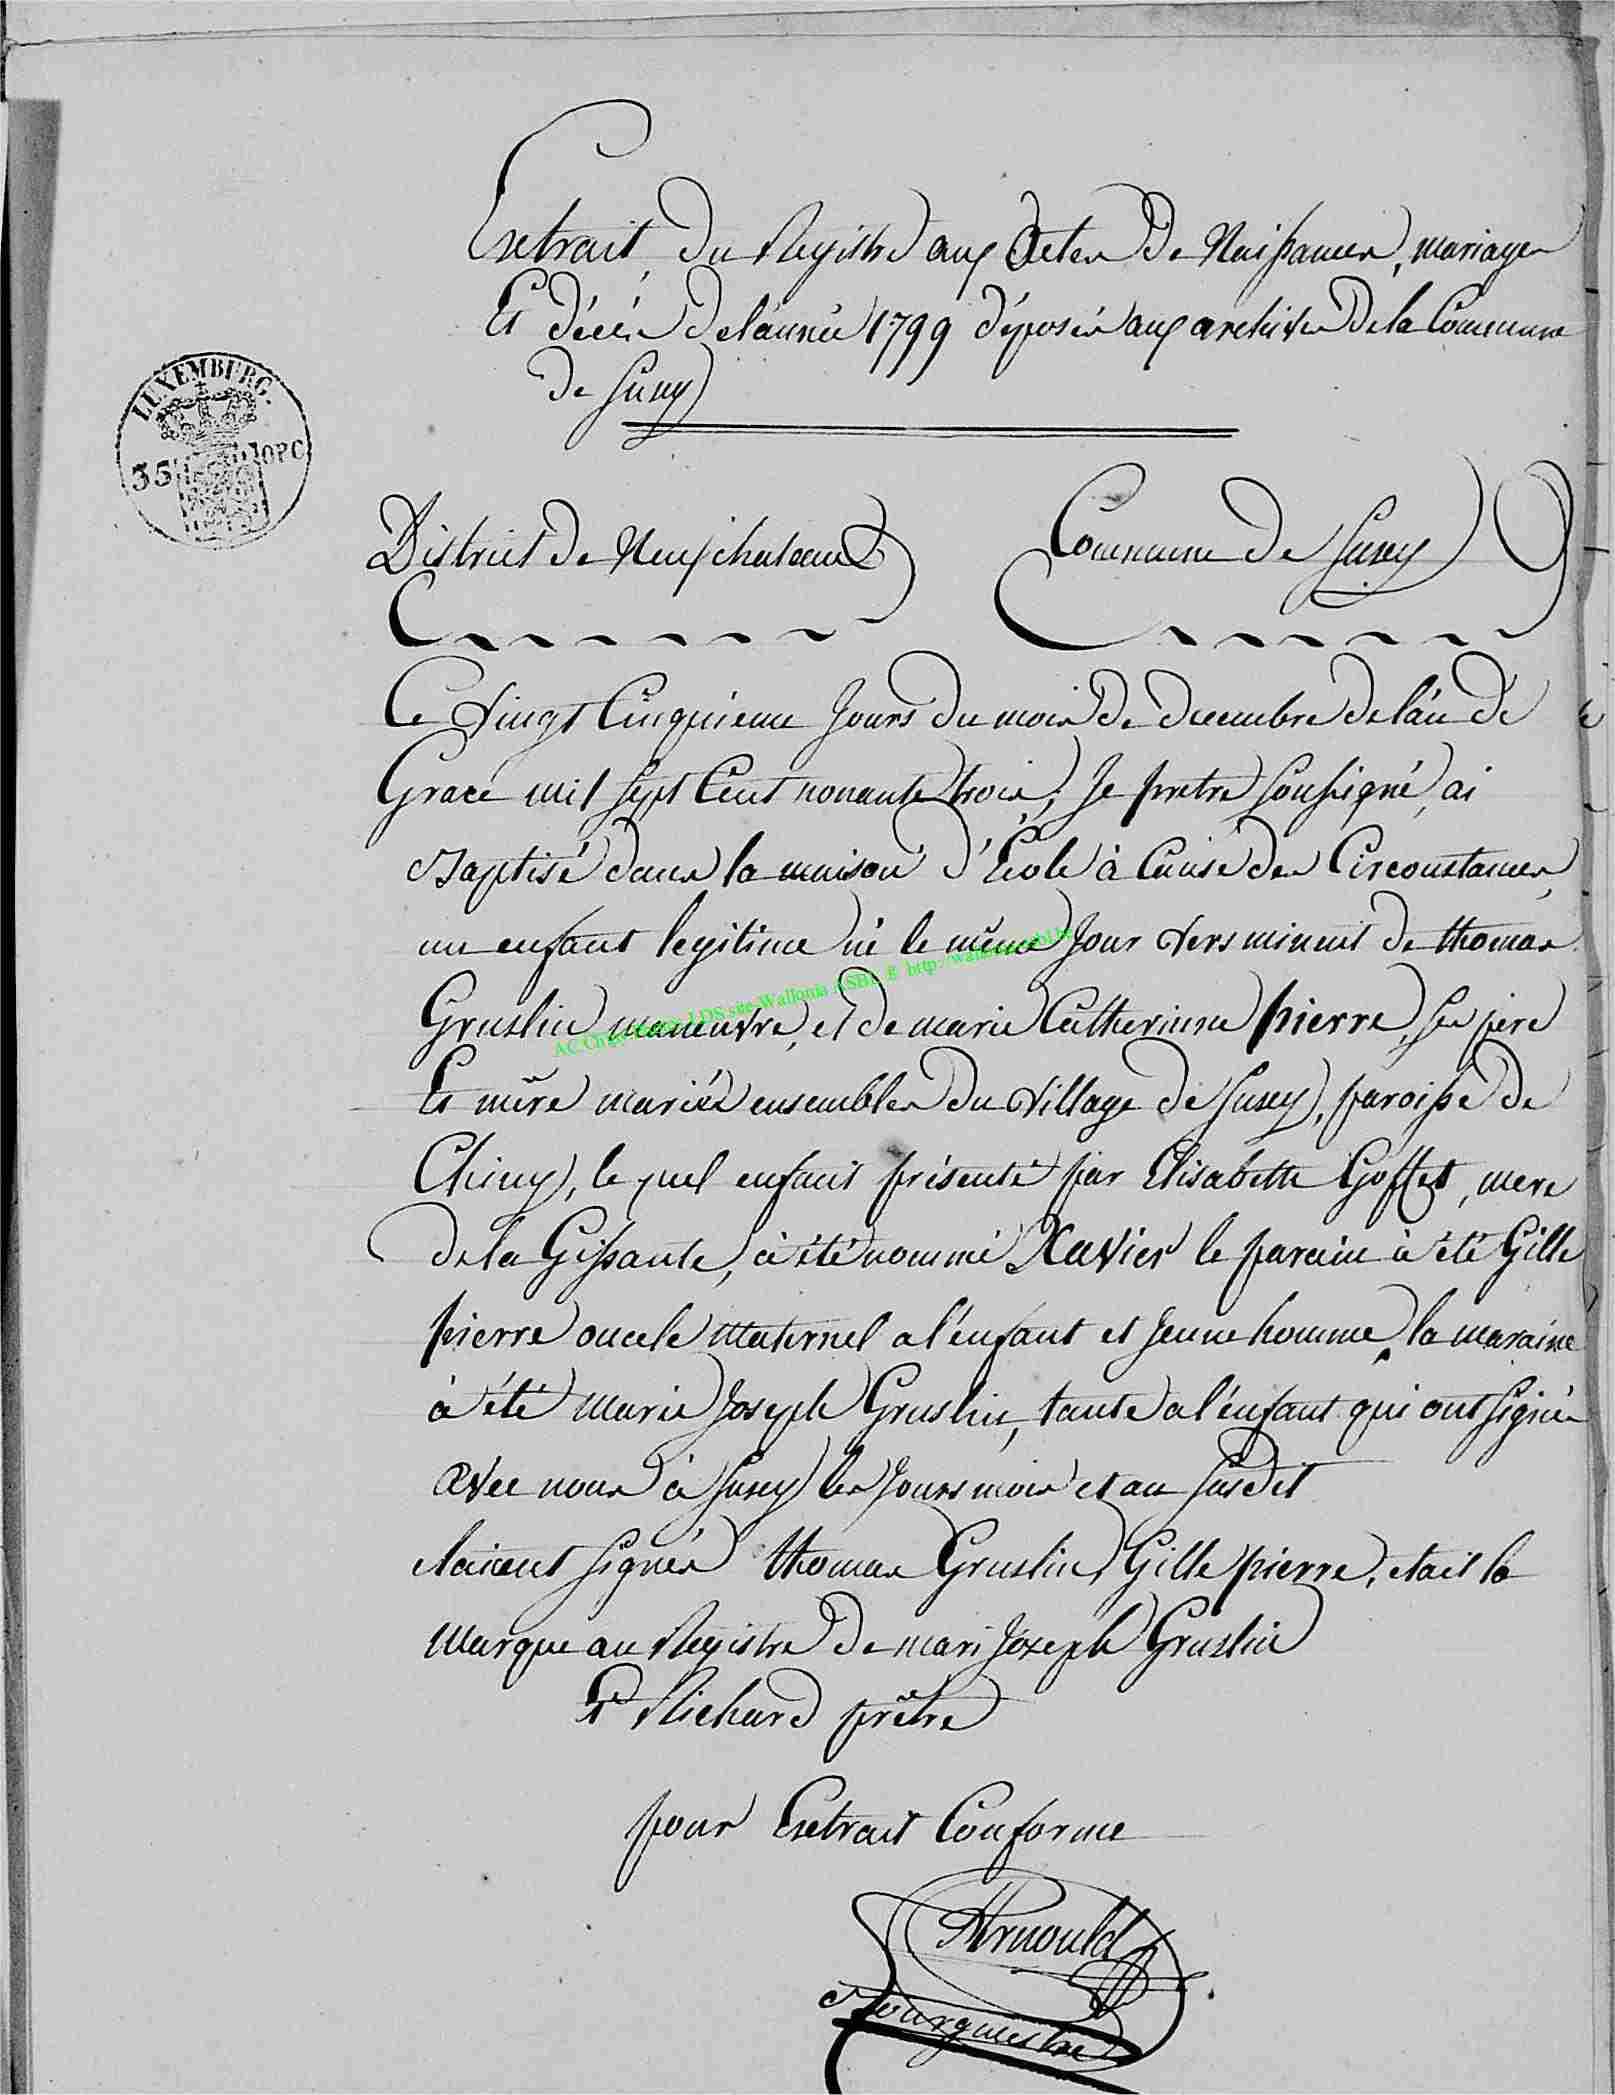 Extrait du Registre aux Actes De Naissances, mariages
Et décès De l'année 1799 déposés aux archives De la Commune
de Suxy
LUXEMBURG.
35 OPC
District De Neufchateau
Commune De Suxy
Ce Vingt Cinquieme Jours Du mois De Decembre De l'an De
Grace mil sept Cent nonante trois, Je pretre soussigné, ai
Baptisé dans la maison d'Ecole à Cause des Circonstances,
un enfant legitime né le même Jour Vers minuit De thomas
Gruslin maneuvre, et De marie Catherinne pierre, ses père
Et mère mariés ensembles Du Village De Suxy, paroisse De
Chiny, le quel enfant présenté par Elisabette Goffet, mere
De la Gissante, à été nommé Xavier le parain à été Gille
pierre oncle Maternel a l'enfant et Jeune homme, la maraine
à été Marie Joseph Gruslin, tante a l'enfant qui ont signés
avec nous à Suxy les Jours mois et an susdit
etaient signés thomas Gruslin, Gille pierre, etait la
Marque au Registre De mari Joseph Gruslin
P Richard prêtre
pour Extrait Conforme
Arnould
Bourgmestre
AC Chiny LDS site Wallonia ASBL E http://wallonia-asbl.be